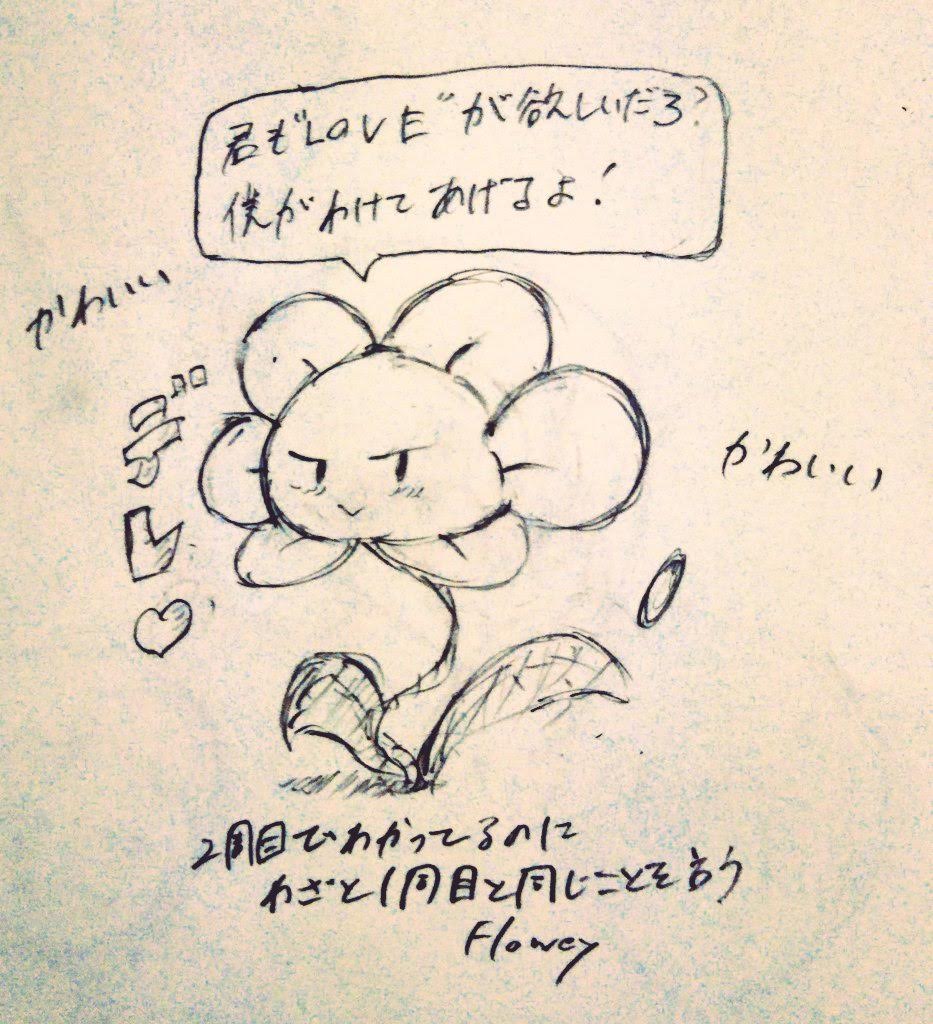 君も"LOVE"が欲しいだろ?
僕がわけてあげるよ!
かわいい
デレ♡
かわいい
2周目でわかってるのに
わざと1周目と同じことを言う
Flowey